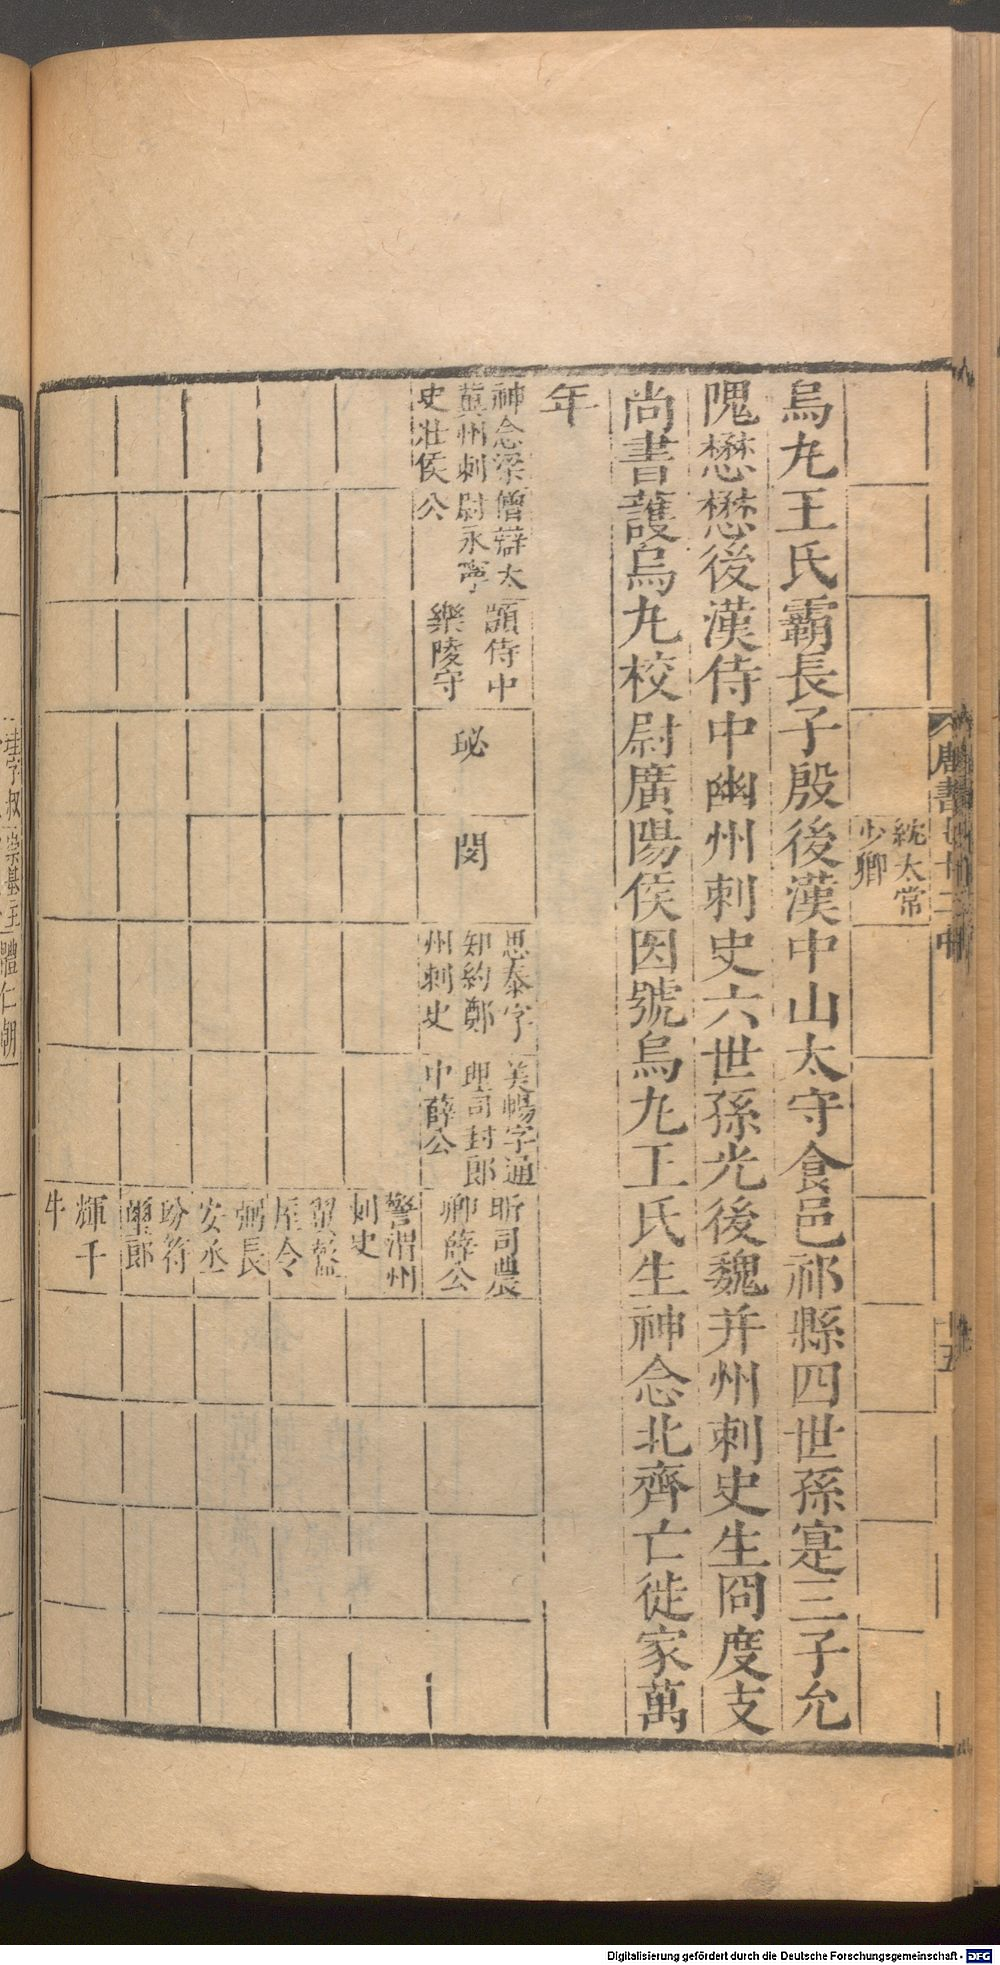 統太常
少卿
烏丸王氏霸長子殷後漢中山太守食邑祁縣四世孫寔三子允
隗懋懋後漢侍中幽州刺史六世孫光後魏并州刺史生冏度支
尚書護烏丸校尉廣陽侯因號烏丸王氏生神念北齊亡徙家萬
年
神念梁
冀州刺
史壯侯
僧辯太
尉永寧
公
顗侍中
樂陵守
珌
閔
思泰字
知約鄭
州刺史
美暢字通
理司封郎
中薛公
昕司農
卿薛公
警渭州
刺史
翼盩
厔令
弼長
安丞
昐符
璽郎
輝千
牛
唐書七十二中
十五
珪字叔
崇基主
體仁朝
Digitalisierung gefördert durch die Deutsche Forschungsgemeinschaft - DFG